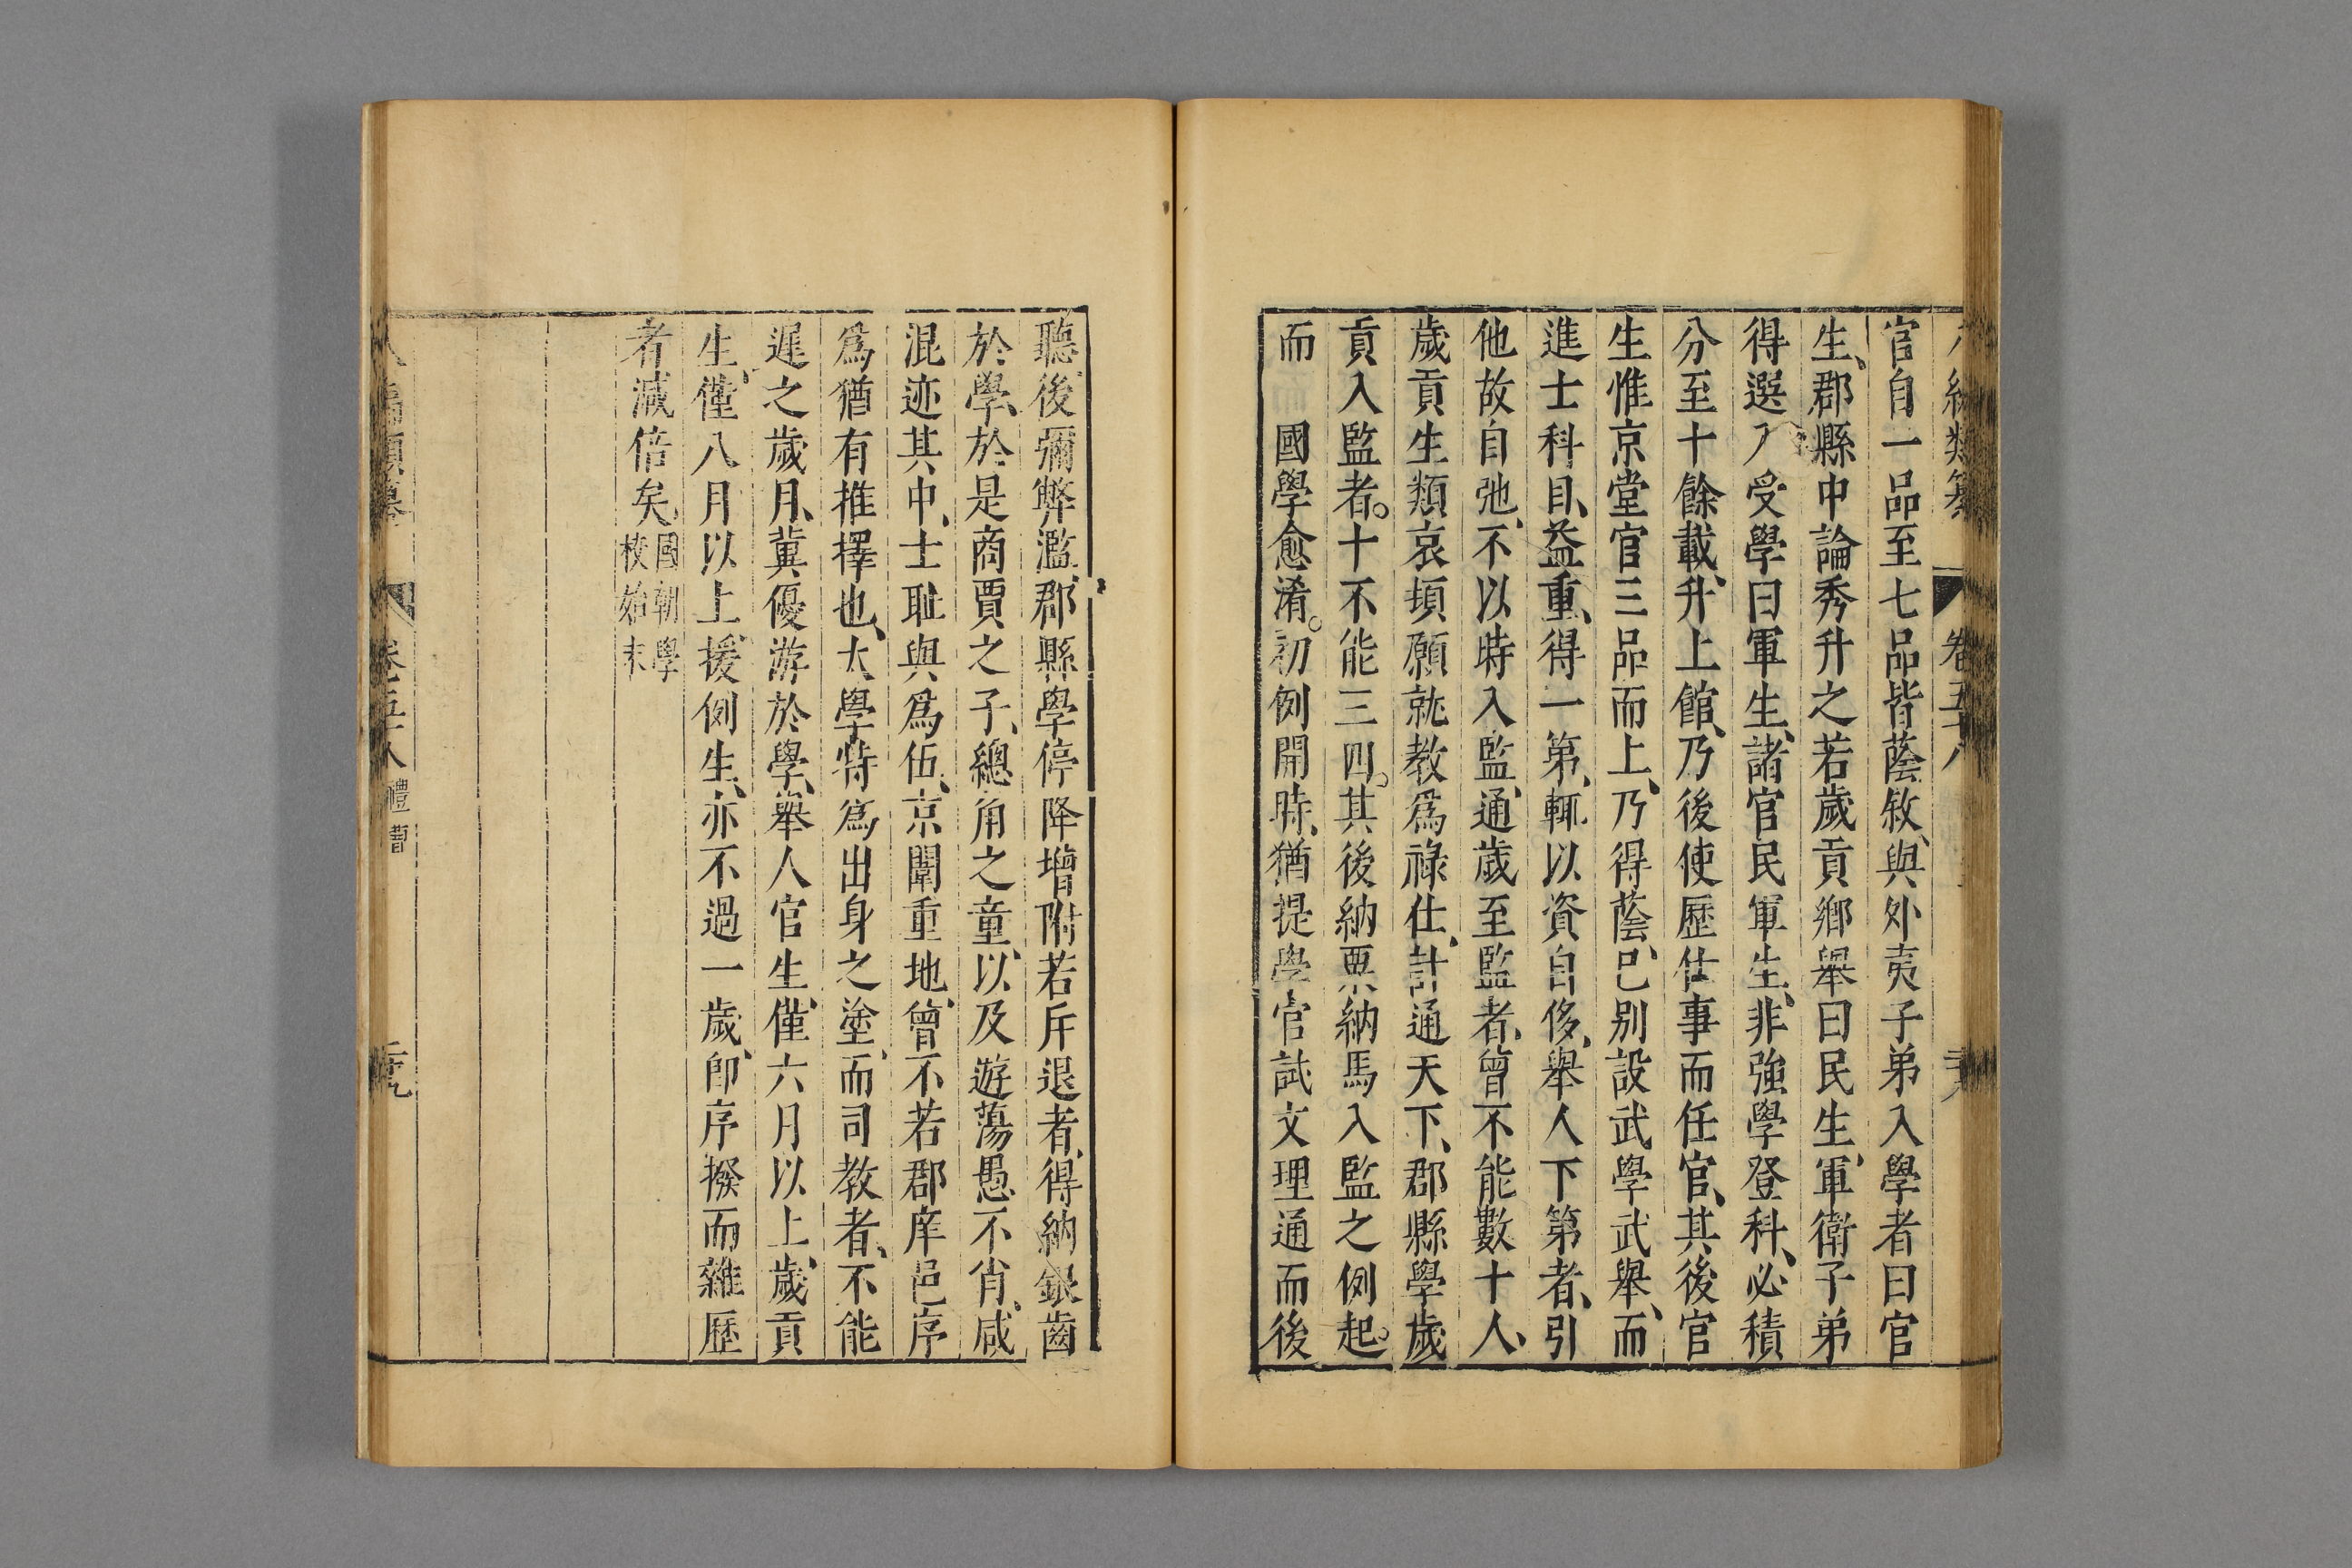 八編類纂 卷五十八
官自一品至七品皆蔭敘、與外夷子弟入學者曰官
生、郡縣中論秀升之若歲貢鄉舉曰民生、軍衛子弟
得選入受學曰軍生、諸官民軍生、非強學登科、必積
分至十餘載、升上館、乃後使歷仕事而任官、其後官
生惟京堂官三品而上、乃得蔭、已別設武學武舉、而
進士科目、益重、得一第、輒以資自侈、舉人下第者、引
他故自弛、不以時入監、通歲至監者、曾不能數十人、
歲貢生類哀頊願就教爲祿仕、計通天下、郡縣學歲
貢入監者。十不能三四。其後納粟納馬入監之例起。
而 國學愈淆。初例開時、猶提學官試文理通而後
聽、後彌弊濫、郡縣學停降增附若斥退者、得納銀齒
於學、於是商賈之子、總角之童、以及遊蕩愚不肖、咸
混迹其中、士耻與爲伍、京闈重地、曾不若郡庠邑序
爲猶有推擇也、太學特爲出身之塗、而司教者、不能
遲之歲月、冀優游於學、舉人官生、僅六月以上、歲貢
生、僅八月以上、援例生、亦不過一歲、卽序撥而雜歷
者減倍矣、
國朝學
校始末
八編類纂 卷五十八 禮曹 二十九